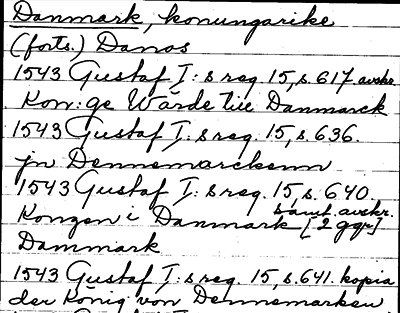 Danmark, konungarike
(forts.) Danos
1543 Gustaf I:s reg. 15, s. 617 avskr.
Kon:ge Wärde till Danmarck
1543 Gustaf I:s reg. 15, s. 636.
jn Dennemarckenn
1543 Gustaf I:s reg. 15, s. 640.
Kongen i Danmark [2 ggr] samt. avskr.
Dammark
1543 Gustaf I:s reg. 15, s. 641. kopia
der König von Dennemarken